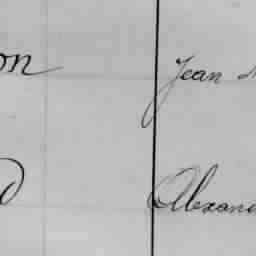 on Jean
d Alexan